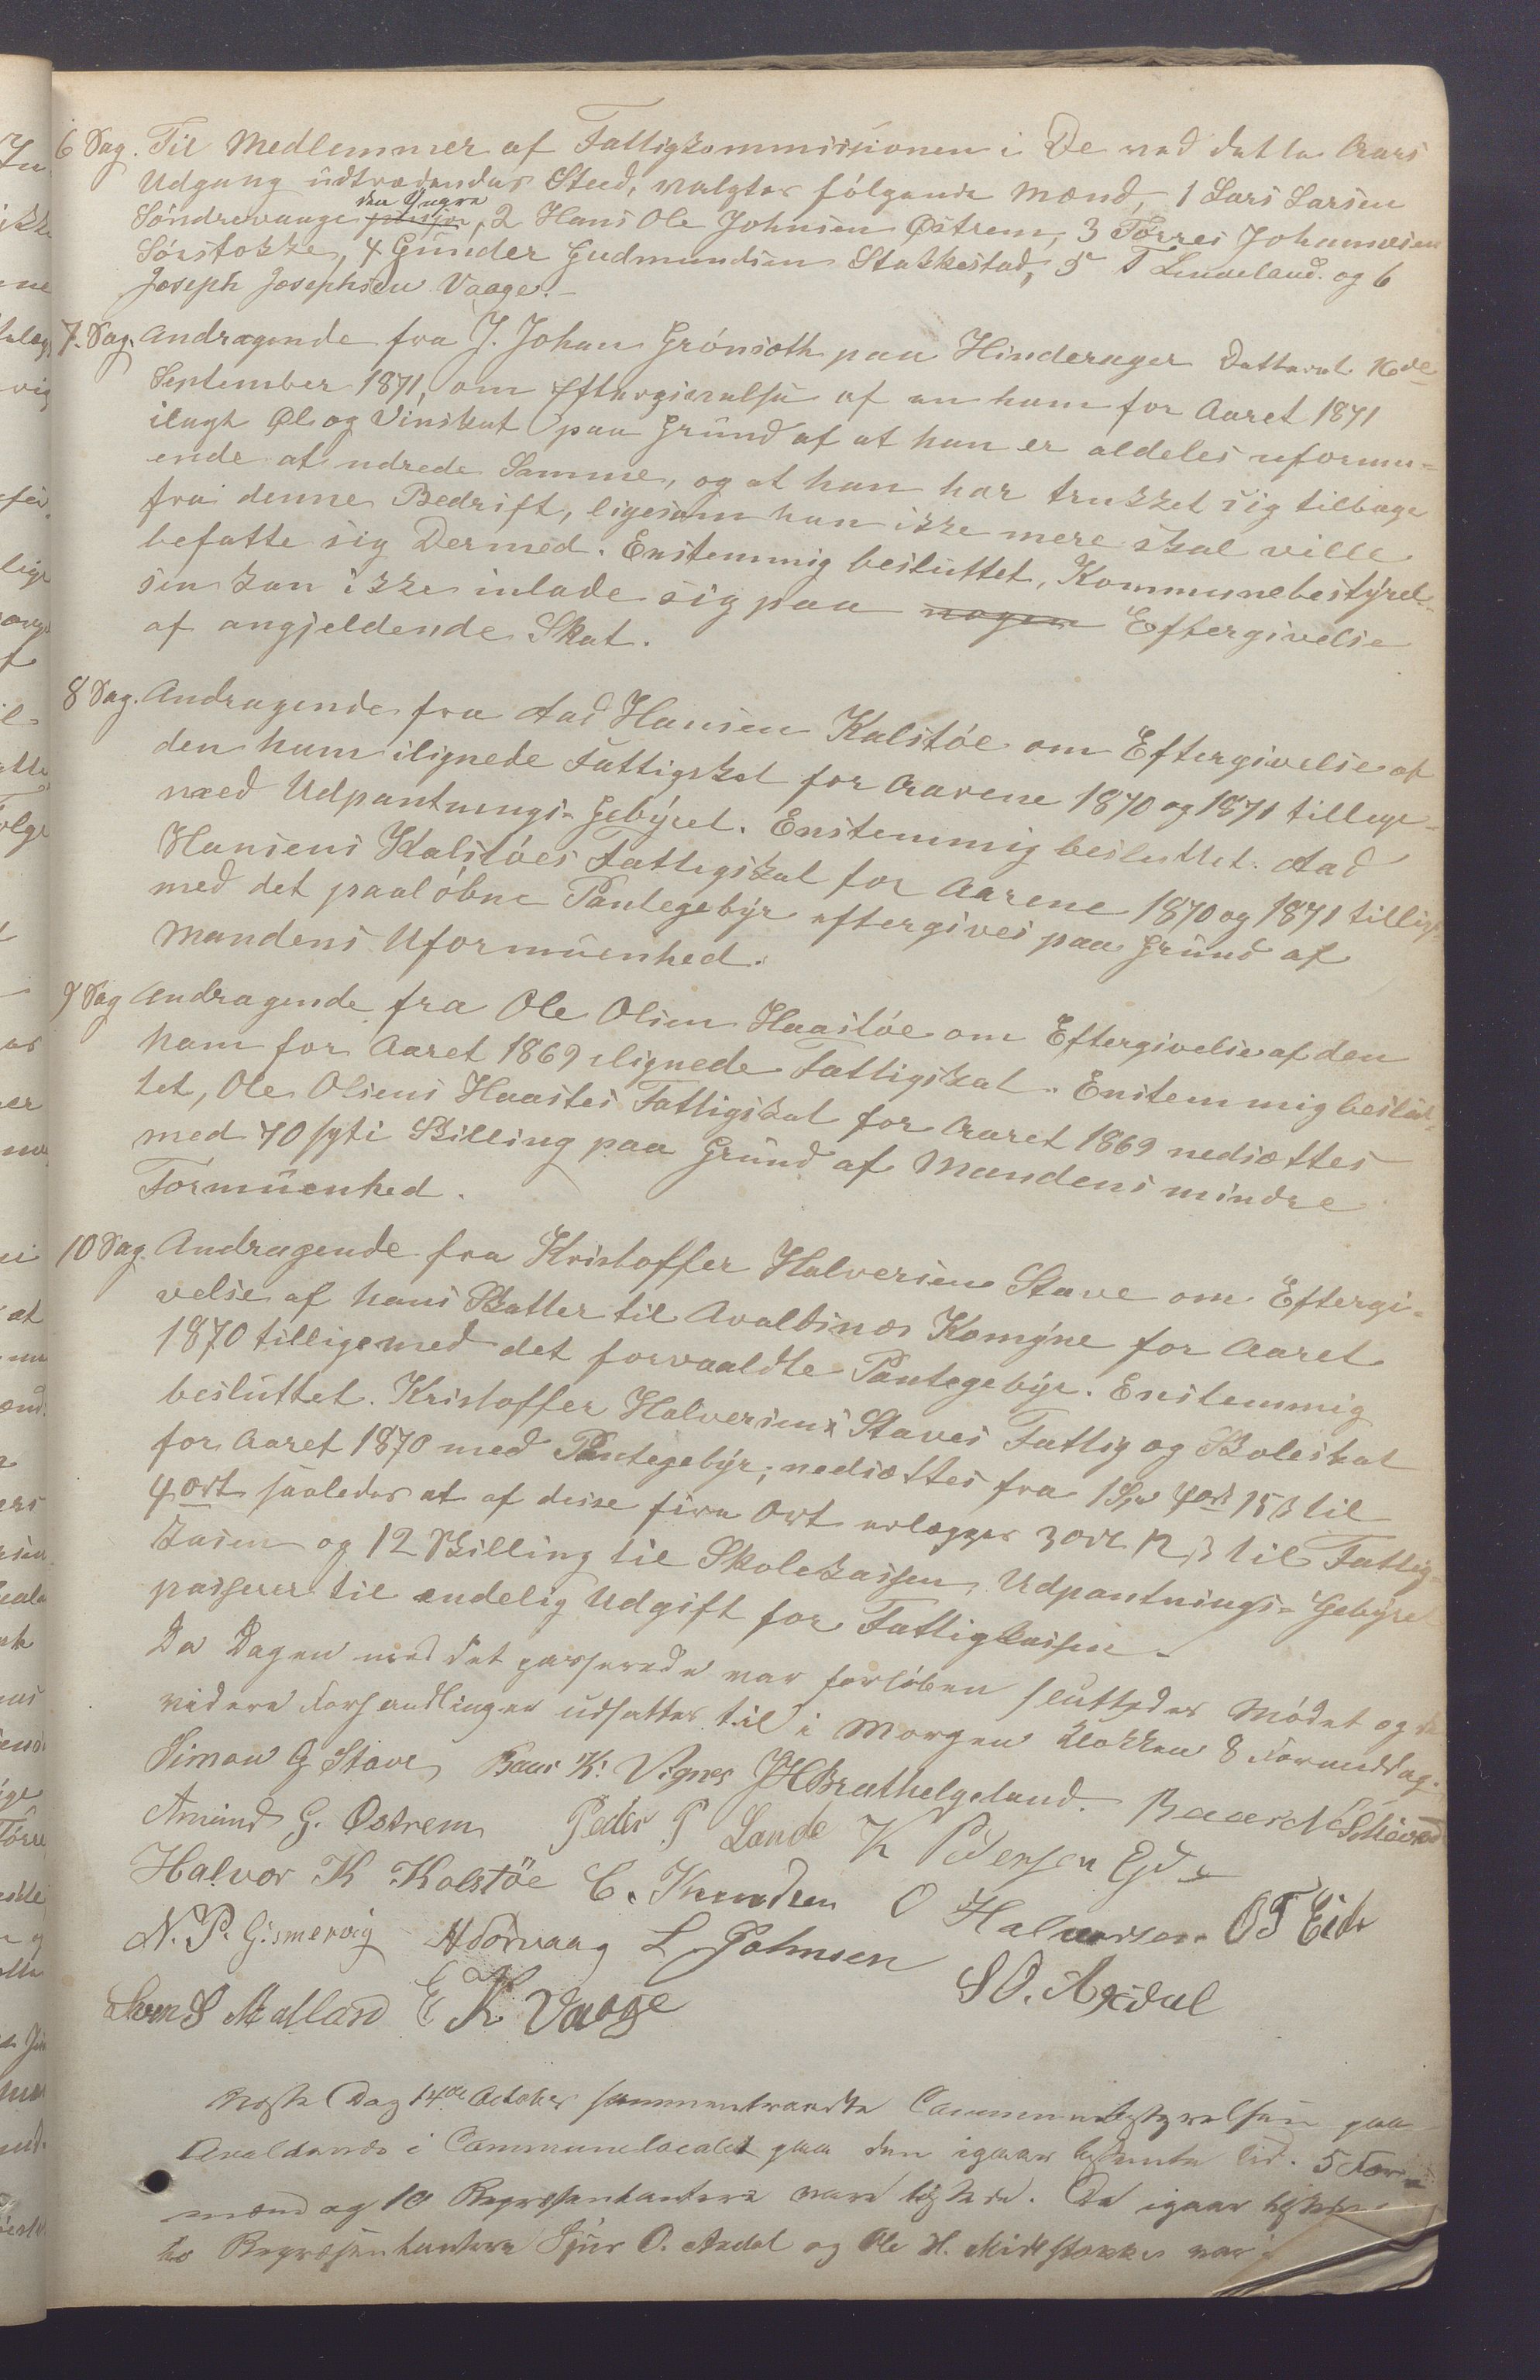 6 Sag. Til Medlemmer af Fattigkommissionen i De ved dette Aars
Udgang udtrædendes Sted, valgtes følgende Mænd, 1 Lars Larsen
den Yngre
Søndrevaage, 2 Hans Ole Johnsen Østrem, 3 Tørres Johannesen
Sørstokke, 4 Gunder Gudmundsen Stakkestad, 5 T Lindeland. og 6
Joseph Josephsen Vaage.-
7. Sag. Andragende fra J. Johan Grónsoth paa Hinderager Datteret 16de
September 1871, om Eftergivelse af en ham for Aaret 1871
ilagt Øl og Vinskat paa Grund af at han er aldeles uformu-
ende at udrede Samme, og at han har trukket sig tilbage
fra denne Bedrift, ligesom han ikke mere skal ville
befatte sig Dermed. Enstemmig besluttet, Kommunebestyrel-
sen kan ikke inlade sig paa nogen Eftergivelse
af angjeldende Skat.
8 Sag. Andragende fra Aad Hansen Kalstøe om Eftergivelse af
den ham ilignede Fattigskat for Aarene 1870 og 1871 tillige-
med Udpantnings-Gebyret. Enstemmig besluttet. Aad
Hansens Kalstøes Fattigskat for Aarene 1870 og 1871 tillige-
med det paaløbne Pantegebyr eftergives paa Grund af
Mandens Uformuenhed.
9 Sag Andragende fra Ole Olsen Haastøe om Eftergivelse af den
ham for Aaret 1869 ilignede Fattigskat. Enstemmig beslut-
tet, Ole Olsens Haastes Fattigskat for Aaret 1869 nedsættes
med 70 syti Skilling paa Grund af Mandens mindre
Formuenhed.
10 Sag. Andragende fra Kristoffer Halversen Stave om Eftergi-
velse af hans Skatter til Avaldsnes Komyne for Aaret
1870 tilligemed det forvaaldte Pantegebyr. Enstemmig
besluttet. Kristoffer Halversens Staves Fattig og Skoleskat
for Aaret 1870 med Pantegebyr; nedsættes fra 1 Spd 4 ort 15 ß til
4 ort saaledes at af disse fire Ort erlægges 3 ort 12 ß til Fattig-
kasen og 12 Skilling til Skolekassen, Udpantnings-Gebyret
passerer til endelig Udgift for Fattigkassen.
Da Dagen med det passerede var forløben sluttedes Mødet og de
videre Forhandlinger udsattes til i Morgen Klokken 8 Formiddag.
Simon G Stave, Baar K. Vignes JH Brathelgeland. Baard Schevvad
Amund G. Østrem Peder P Lande K Pedersen Eide
Halvor K Kolstöe C. Knudsen O Halvorsen OT Eide
N. P. Gismervig H Sørvaag L Johnsen
Sven S Mælland E K Vaage S O. Axdal
Næste Dag 14de October sammentraadte Communebestyrelsen paa
Avaldsnæs i Communelocalet paa den igaar bestemte Tid. 5 For-
mænd og 10 Repræsentantere vare tilstede. De igaar
to Repræsentantere Sjur O. Axdal og Ole H. Midtstokke var